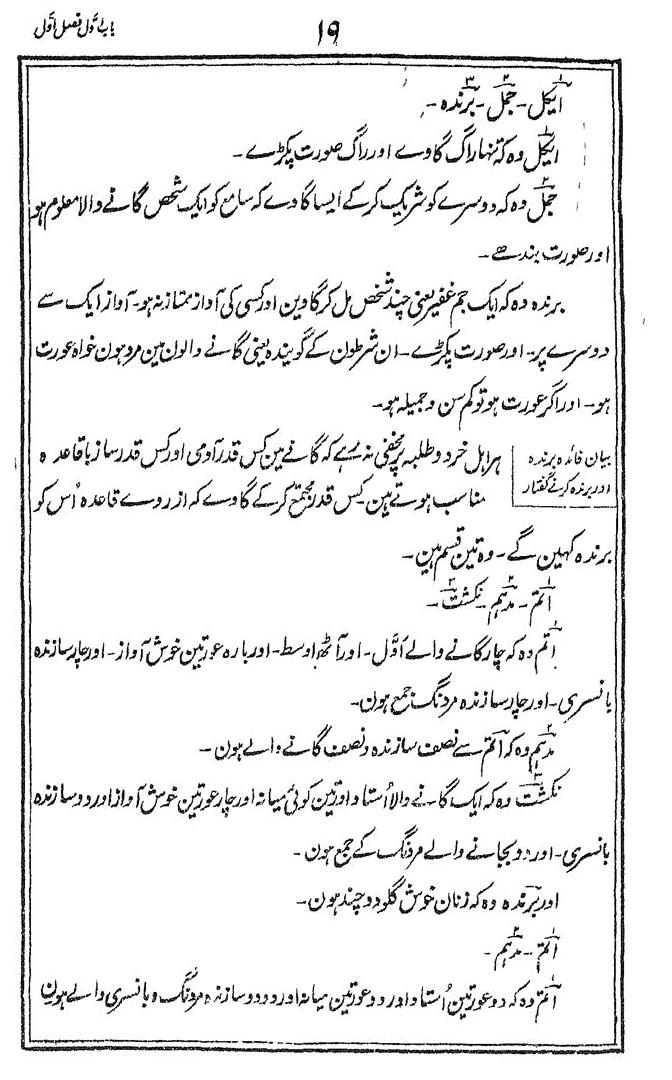 باب اوّل فصل اوّل
۱۹
۱ ایکل - ۲ جمل - ۳ برندہ -
۱ ایکل وہ کہ تنہا راگ گاوے اور راگ صورت پکڑے -
۲ جمل وہ کہ دوسرے کو شریک کرکے ایسا گاوے کہ سامع کو ایک شخص گانے والا معلوم ہو
اور صورت بندھے -
برندہ وہ کہ ایک جم غفیر یعنی چند شخص مل کر گاوین اور کسی کی آواز ممتاز نہ ہو - آواز ایک سے
دوسرے پر - اور صورت پکڑے - ان شرطون کے گویندہ یعنی گانے والون مین مرد ہون خواہ عورت
ہو - اور اگر عورت ہو تو کم سن و جمیلہ ہو -
بیان فائدہ برندہ
اور برندہ کرنے گفتار
ہر اہل خرد و طلبہ پر مخفی نہ رہے کہ گانے مین کس قدر آدمی اور کس قدر ساز باقاعدہ
مناسب ہوتے ہین کس قدر مجتمع کرکے گاوے کہ از روے قاعدہ اُس کو
برندہ کہین گے - وہ تین قسم ہین -
۱ اتم - ۲ مدہم - ۳ نکشت -
۱ اتم وہ کہ چار گانے والے اُوّل - اور آٹھ اوسط - اور بارہ عورتین خوش آواز - اور چار سازندہ
بانسری - اور چار سازندہ مردنگ جمع ہون -
۲ مدہم وہ کہ اتم سے نصف سازندہ و نصف گانے والے ہون -
۳ نکشت وہ کہ ایک گانے والا اُستاد اور تین کوئی میانہ اور چار عورتین خوش آواز اور دو سازندہ
بانسری - اور دو بجانے والے مردنگ کے جمع ہون -
اور برندہ وہ کہ زنان خوش گلو دو چند ہون -
۱ اتم - ۲ مدہم -
۱ اتم وہ کہ دو عورتین اُستاد اور دو عورتین میانہ اور دو دو سازندہ مردنگ و بانسری والے ہون